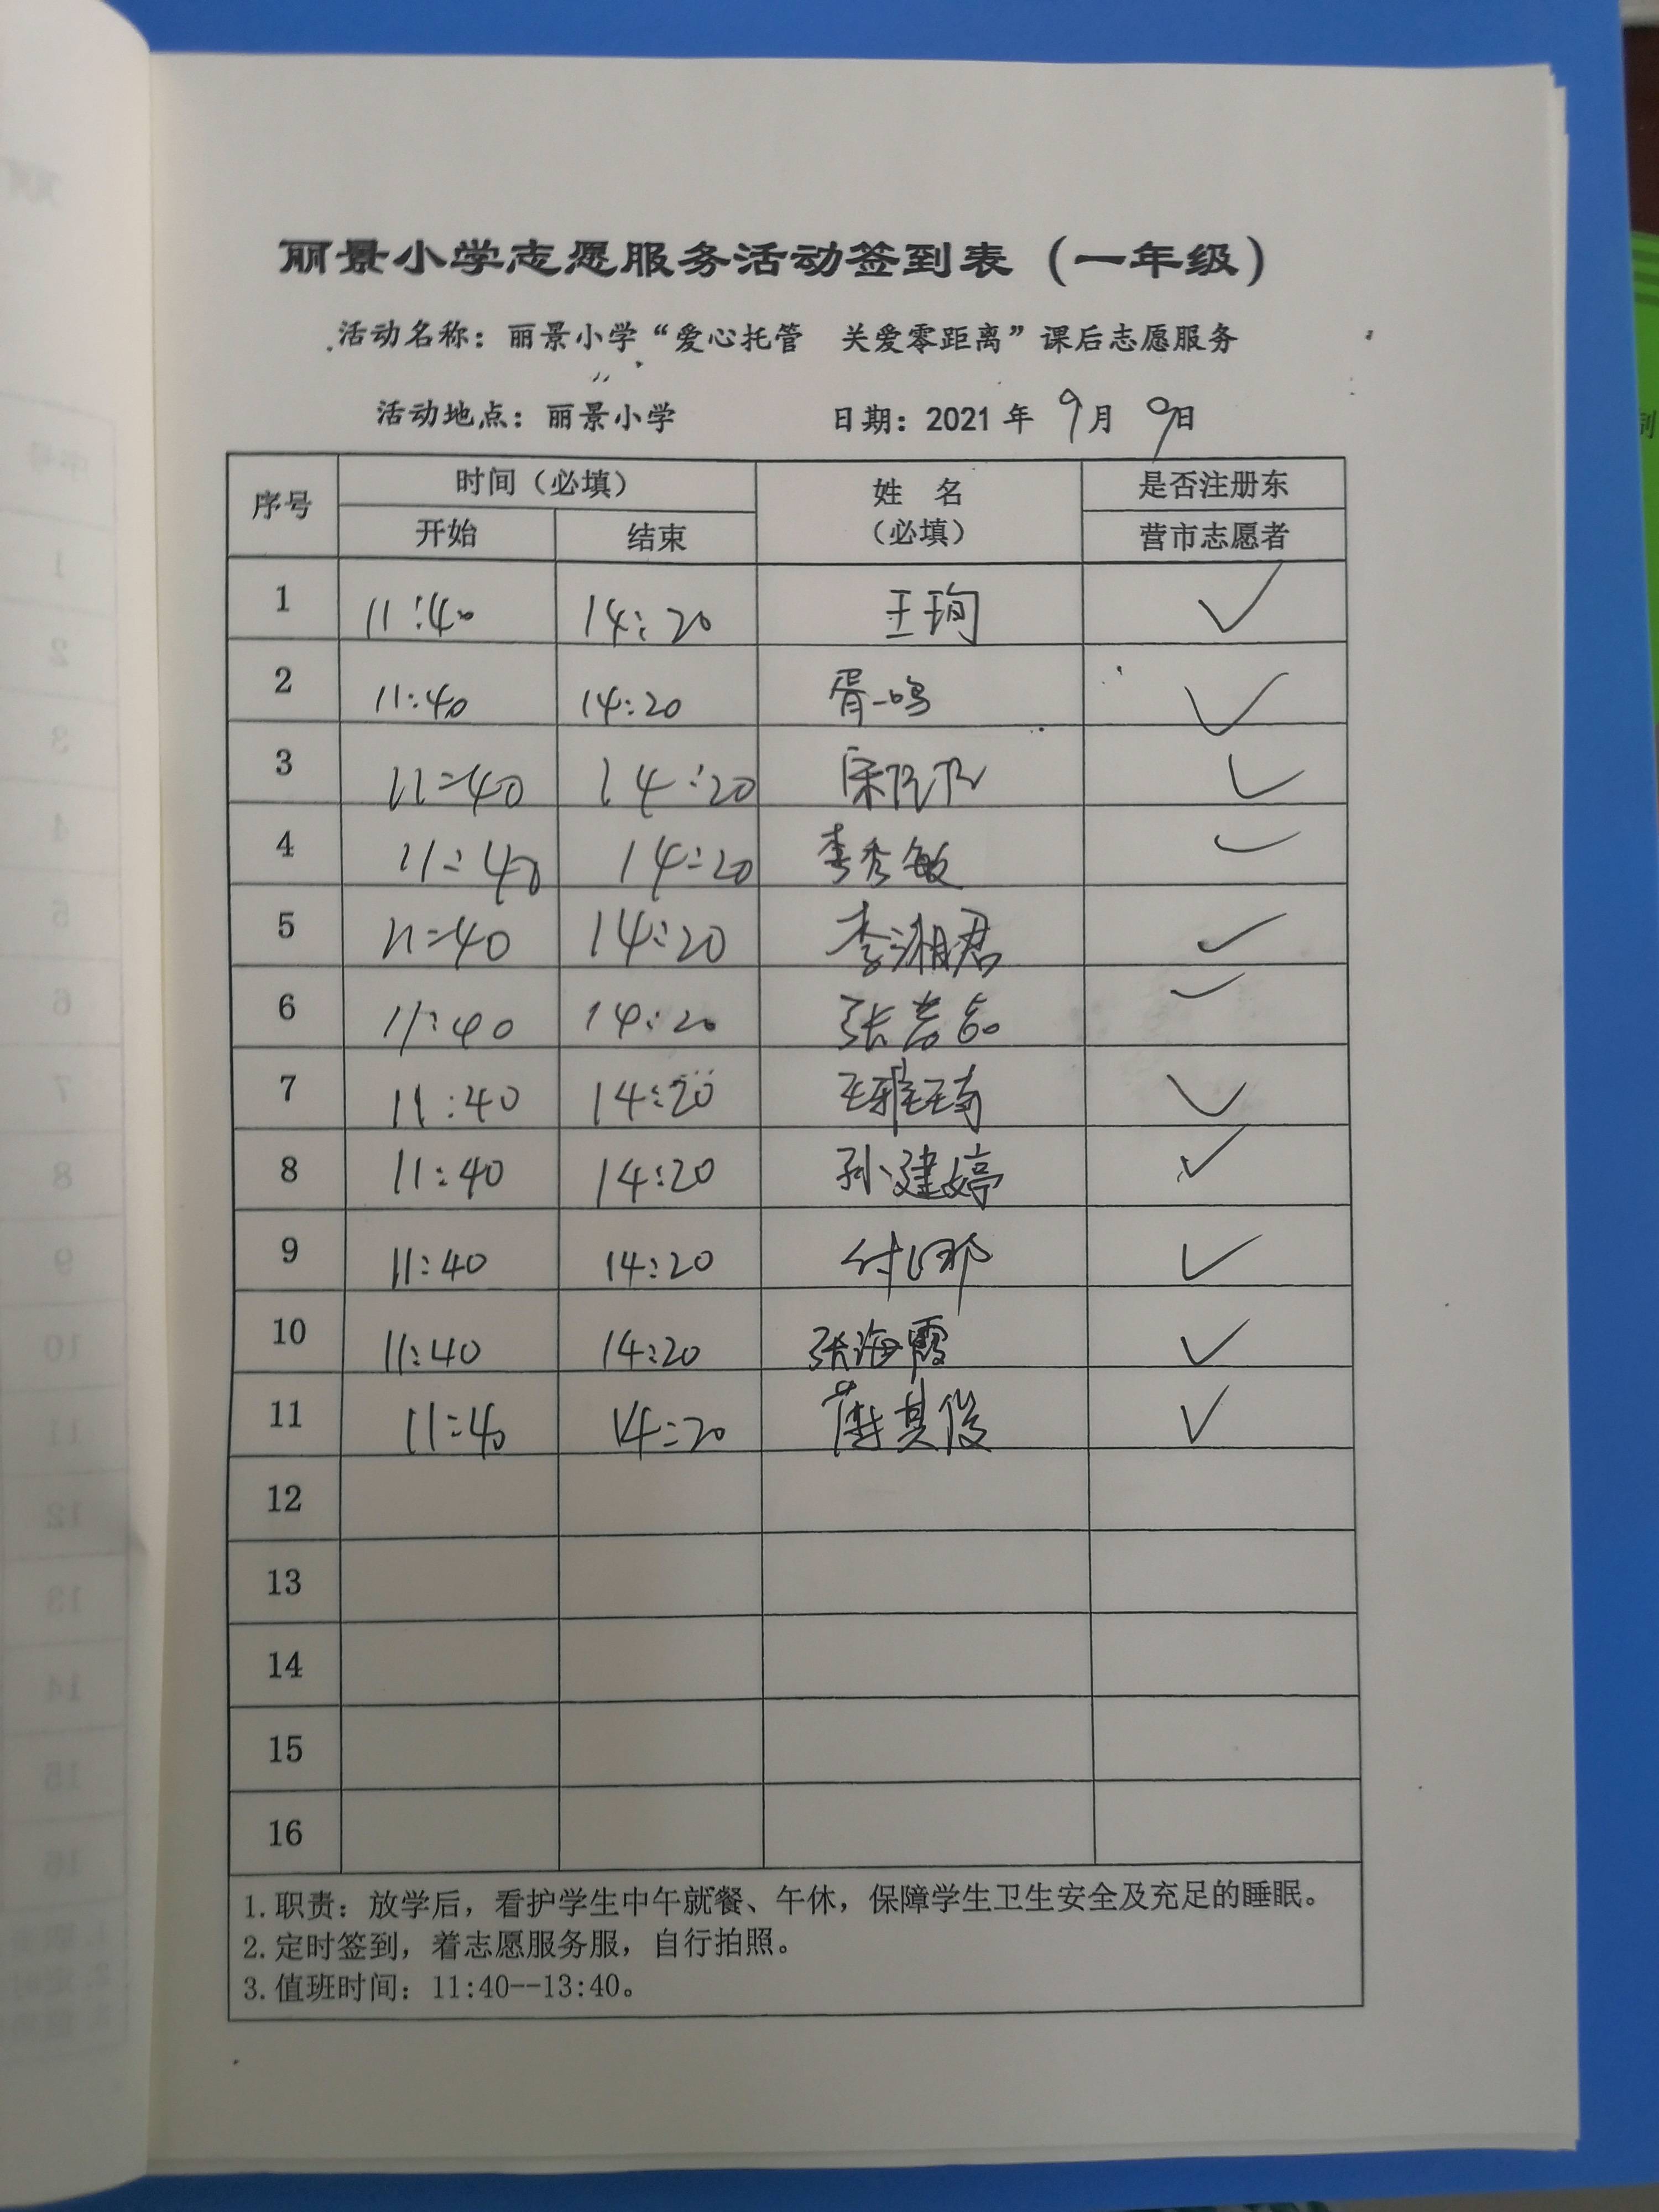 丽景小学志愿服务活动签到表（一年级）
活动名称：丽景小学“爱心托管 关爱零距离”课后志愿服务
活动地点：丽景小学 日期：2021年 9月 9日
序号 时间（必填） 姓 名（必填） 是否注册东
开始 结束 营市志愿者
1 11:40 14:20 王珣 ✓
2 11:40 14:20 胥一鸣 ✓
3 11:40 14:20 宋 ✓
4 11:40 14:20 李秀敏 ✓
5 11:40 14:20 李湘君 ✓
6 11:40 14:20 张 ✓
7 11:40 14:20 王雅琦 ✓
8 11:40 14:20 孙建婷 ✓
9 11:40 14:20 付 ✓
10 11:40 14:20 张海霞 ✓
11 11:40 14:20 薛其俊 ✓
12
13
14
15
16
1.职责：放学后，看护学生中午就餐、午休，保障学生卫生安全及充足的睡眠。
2.定时签到，着志愿服务服，自行拍照。
3.值班时间：11:40--13:40。